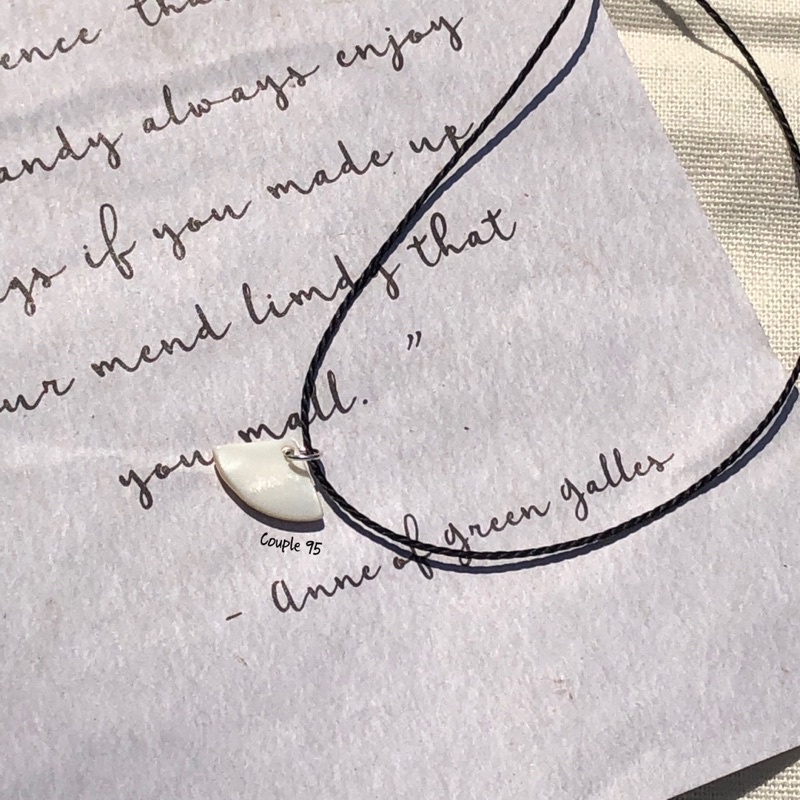 ence tha
andy always enjoy
gs if you made up
ur mend limdy that
you mall. ”
Couple 95
- Anne of green galles